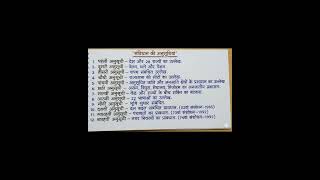 "संविधान की अनुसूचियां"
1. पहली अनुसूची - देश और 28 राज्यों का उल्लेख.
2. दूसरी अनुसूची - वेतन, भत्ते और पेंशन
3. तीसरी अनुसूची - शपथ संबंधित उल्लेख.
4. चौथी अनुसूची - राज्यसभा की सीटों का उल्लेख.
5. पांचवी अनुसूची - अनुसूचित जाति और जनजाति क्षेत्रों के प्रशासन का उल्लेख
6. छठी अनुसूची - असम, त्रिपुरा, मेघालय, मिजोरम का जनजातीय प्रशासन.
7. सातवी अनुसूची - केंद्र और राज्यों के बीच शक्ति का बंटवारा
8. आठवी अनुसूची - 22 भाषाओं का उल्लेख.
9. नौवी अनुसूची - भूमि सुधार संबंधित.
10. दसवी अनुसूची - दल बदल संबंधित प्रावधान. (52वां संशोधन-1985)
11. ग्यारहवी अनुसूची - पंचायतों का प्रावधान. (73वां संशोधन-1992)
12. बारहवी अनुसूची - नगर निकायों का प्रावधान. (74वां संशोधन-1992)